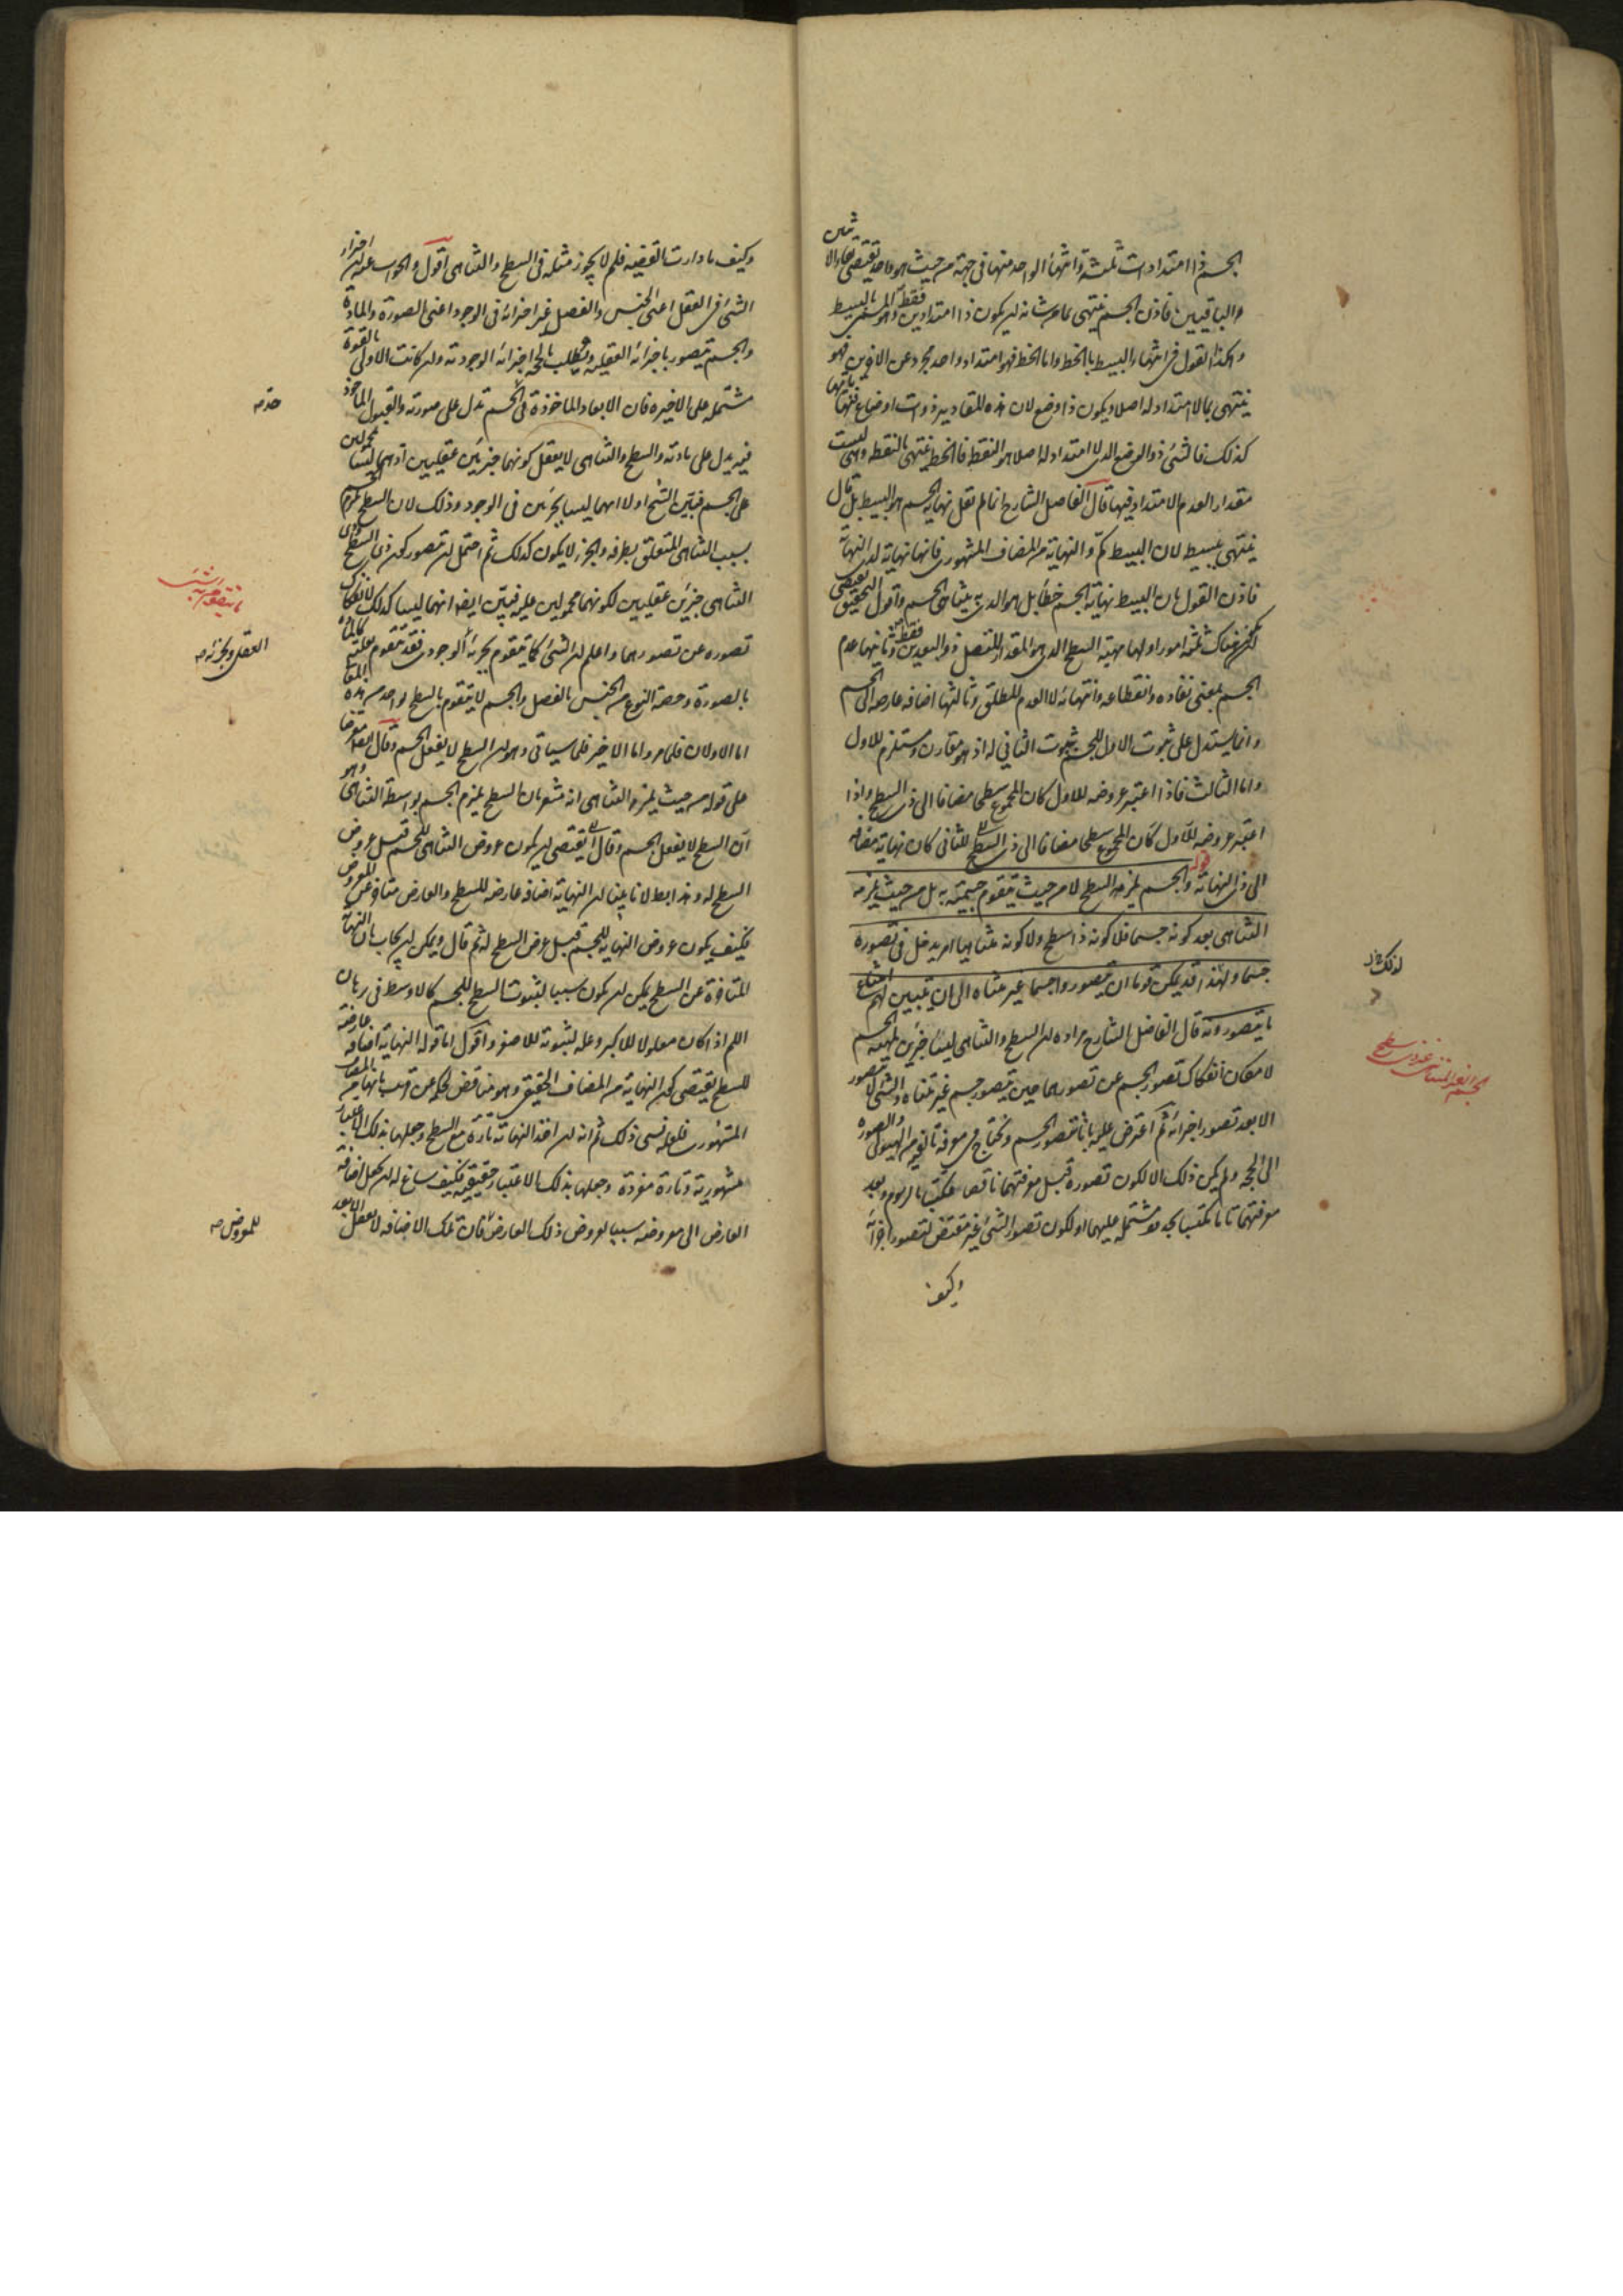 الجسم ذا امتدادات ثلثة وانتهاء الواحد منها فى جهة من حيث هو واحد يقتضى بقاء الاثنين
والباقيين فاذن الجسم ينتهى بما من شانه ان يكون ذا امتدادين فقط وهو المسمى بالبسيط
وهكذا القول فى انتهاء البسيط بالخط واما الخط فهو امتداد واحد مجرد عن الاخرين فهو
ينتهى بما لا امتداد له اصلا ويكون ذا وضع لان هذه المقادير ذوات اوضاع فنهاياتها
كذلك فالشئ ذو الوضع الذى لا امتداد له اصلا هو النقطة فالخط ينتهى بالنقطة وهى ليست
مقدار العدم الامتداد فيها قال الفاضل الشارح انما لم يقل نهاية الجسم هو البسيط بل قال
ينتهى ببسيط لان البسيط كم والنهاية من المضاف المشهورى فانها نهاية لذى النهاية
فاذن القول بان البسيط نهاية الجسم خطأ بل هو الذى به يتناهى الجسم واقول التحقيق يقتضى
ان هناك ثلثة امور اولها مهية السطح الذى هو المقدار المتصل ذو البعدين فقط وثانيها عدم
الجسم بمعنى نفاده وانقطاعه وانتهائه لا العدم المطلق وثالثها اضافة عارضة الى الجسم
وانما يستدل على ثبوت الاول للجسم بثبوت الثانى له اذ هو مقارن ومستلزم للاول
واما الثالث فاذا اعتبر عروضه للاول كان المجموع سطحا مضافا الى ذى السطح واذا
اعتبر عروضه للاول كان المجموع سطحا مضافا الى ذى السطح للثانى كان نهاية مضافة
الى ذى النهاية قوله والجسم يلزمه السطح لا من حيث يتقوم جسميته به بل من حيث يلزمه
التناهى بعد كونه جسما فلا كونه ذا سطح ولا كونه متناهيا امر يدخل فى تصوره
جسما ولهذا قد يمكن قوما ان يتصوروا جسما غير متناه الى ان يتبين لهم امتناع
ما يتصورونه قال الفاضل الشارح مراده ان السطح والتناهى ليسا جزئين لمهية الجسم
لامكان انفكاك تصور الجسم عن تصورهما حين يتصور جسم غير متناه والشئ لا يتصور
الا بعد تصور اجزائه ثم اعترض عليه بانا نتصور الجسم ونحتاج فى معرفة تالفه من الهيولى والصورة
الى الحجة ولم يكن ذلك الا لكون تصوره قبل معرفتهما ناقصا مكتسبا بالرسوم وبعد
معرفتهما تاما مكتسبا بحد مشتمل عليهما او لكون تصور الشئ غير مقتض لتصور اجزائه
وكيف
لذلك
وكيف ما دارت القضية فلم لا يجوز مثله فى السطح والتناهى اقول والجواب عنه ان اجزاء
الشئ فى العقل اعنى الجنس والفصل غير اجزائه فى الوجود اعنى الصورة والمادة
والجسم يتصور باجزائه العقلية ويطلب بالحجة اجزائه الوجودية وان كانت الاولى بالقوة
مشتملة على الاخيرة فان الابعاد الماخوذة فى الجسم تدل على صورته والقبول الماخوذ
فيه يدل على مادته والسطح والتناهى لا يعقل كونهما جزئين عقليين اذ هما ليسا بمحمولين
على الجسم فبين الشيخ اولا انهما ليسا بجزئين فى الوجود وذلك لان السطح يلزم الجسم
بسبب التناهى المتعلق بطرفه والجزء لا يكون كذلك ثم احتمل ان يتصور كون ذى السطح وذى
التناهى جزئين عقليين لكونهما محمولين عليه فبين ايضا انهما ليسا كذلك لانفكاك
تصوره عن تصورهما واعلم ان الشئ كما يتقوم بجزئه الوجودى فقد يتقوم بعلته كالمادة
بالصورة وحصة النوع من الجنس بالفصل والجسم لا يتقوم بالسطح بواحد من هذه المعانى
اما الاولان فلما مر واما الاخير فلما سياتى وهو ان السطح لا يفعل الجسم وقال ايضا معترضا
على قوله من حيث يلزمه التناهى انه مشعر بان السطح يلزم الجسم بواسطة التناهى وهو
ان السطح لا يفعل الجسم وقال يقتضى ان يكون عروض التناهى للجسم قبل عروض
السطح له وهذا بط لانا بينا ان النهاية اضافة عارضة للسطح والعارض متاخر عن المعروض
فكيف يكون عروض النهاية للجسم قبل عروض السطح له ثم قال ويمكن ان يجاب بان النهاية
المتاخرة عن السطح يمكن ان يكون سببا لثبوت السطح للجسم كالاوسط فى برهان
اللم اذا كان معلولا للاكبر وعلة لثبوته للاصغر واقول اما قوله النهاية اضافة عارضة
للسطح يقتضى كون النهاية من المضاف الحقيقى وهو مناقض لحكمه عن قريب بانها من المضاف
المشهورى فلعله نسى ذلك ثم انه ان اخذ النهاية تارة مع السطح وجعلها بذلك الاعتبار
مشهورية وتارة مفردة وجعلها بذلك الاعتبار حقيقية فكيف ساغ له ان يجعل اضافة
العارض الى معروضه سببا لعروض ذلك العارض فان تلك الاضافة لا يعقل الا بعد
العقلى وبجزئه صه
للعروض صه